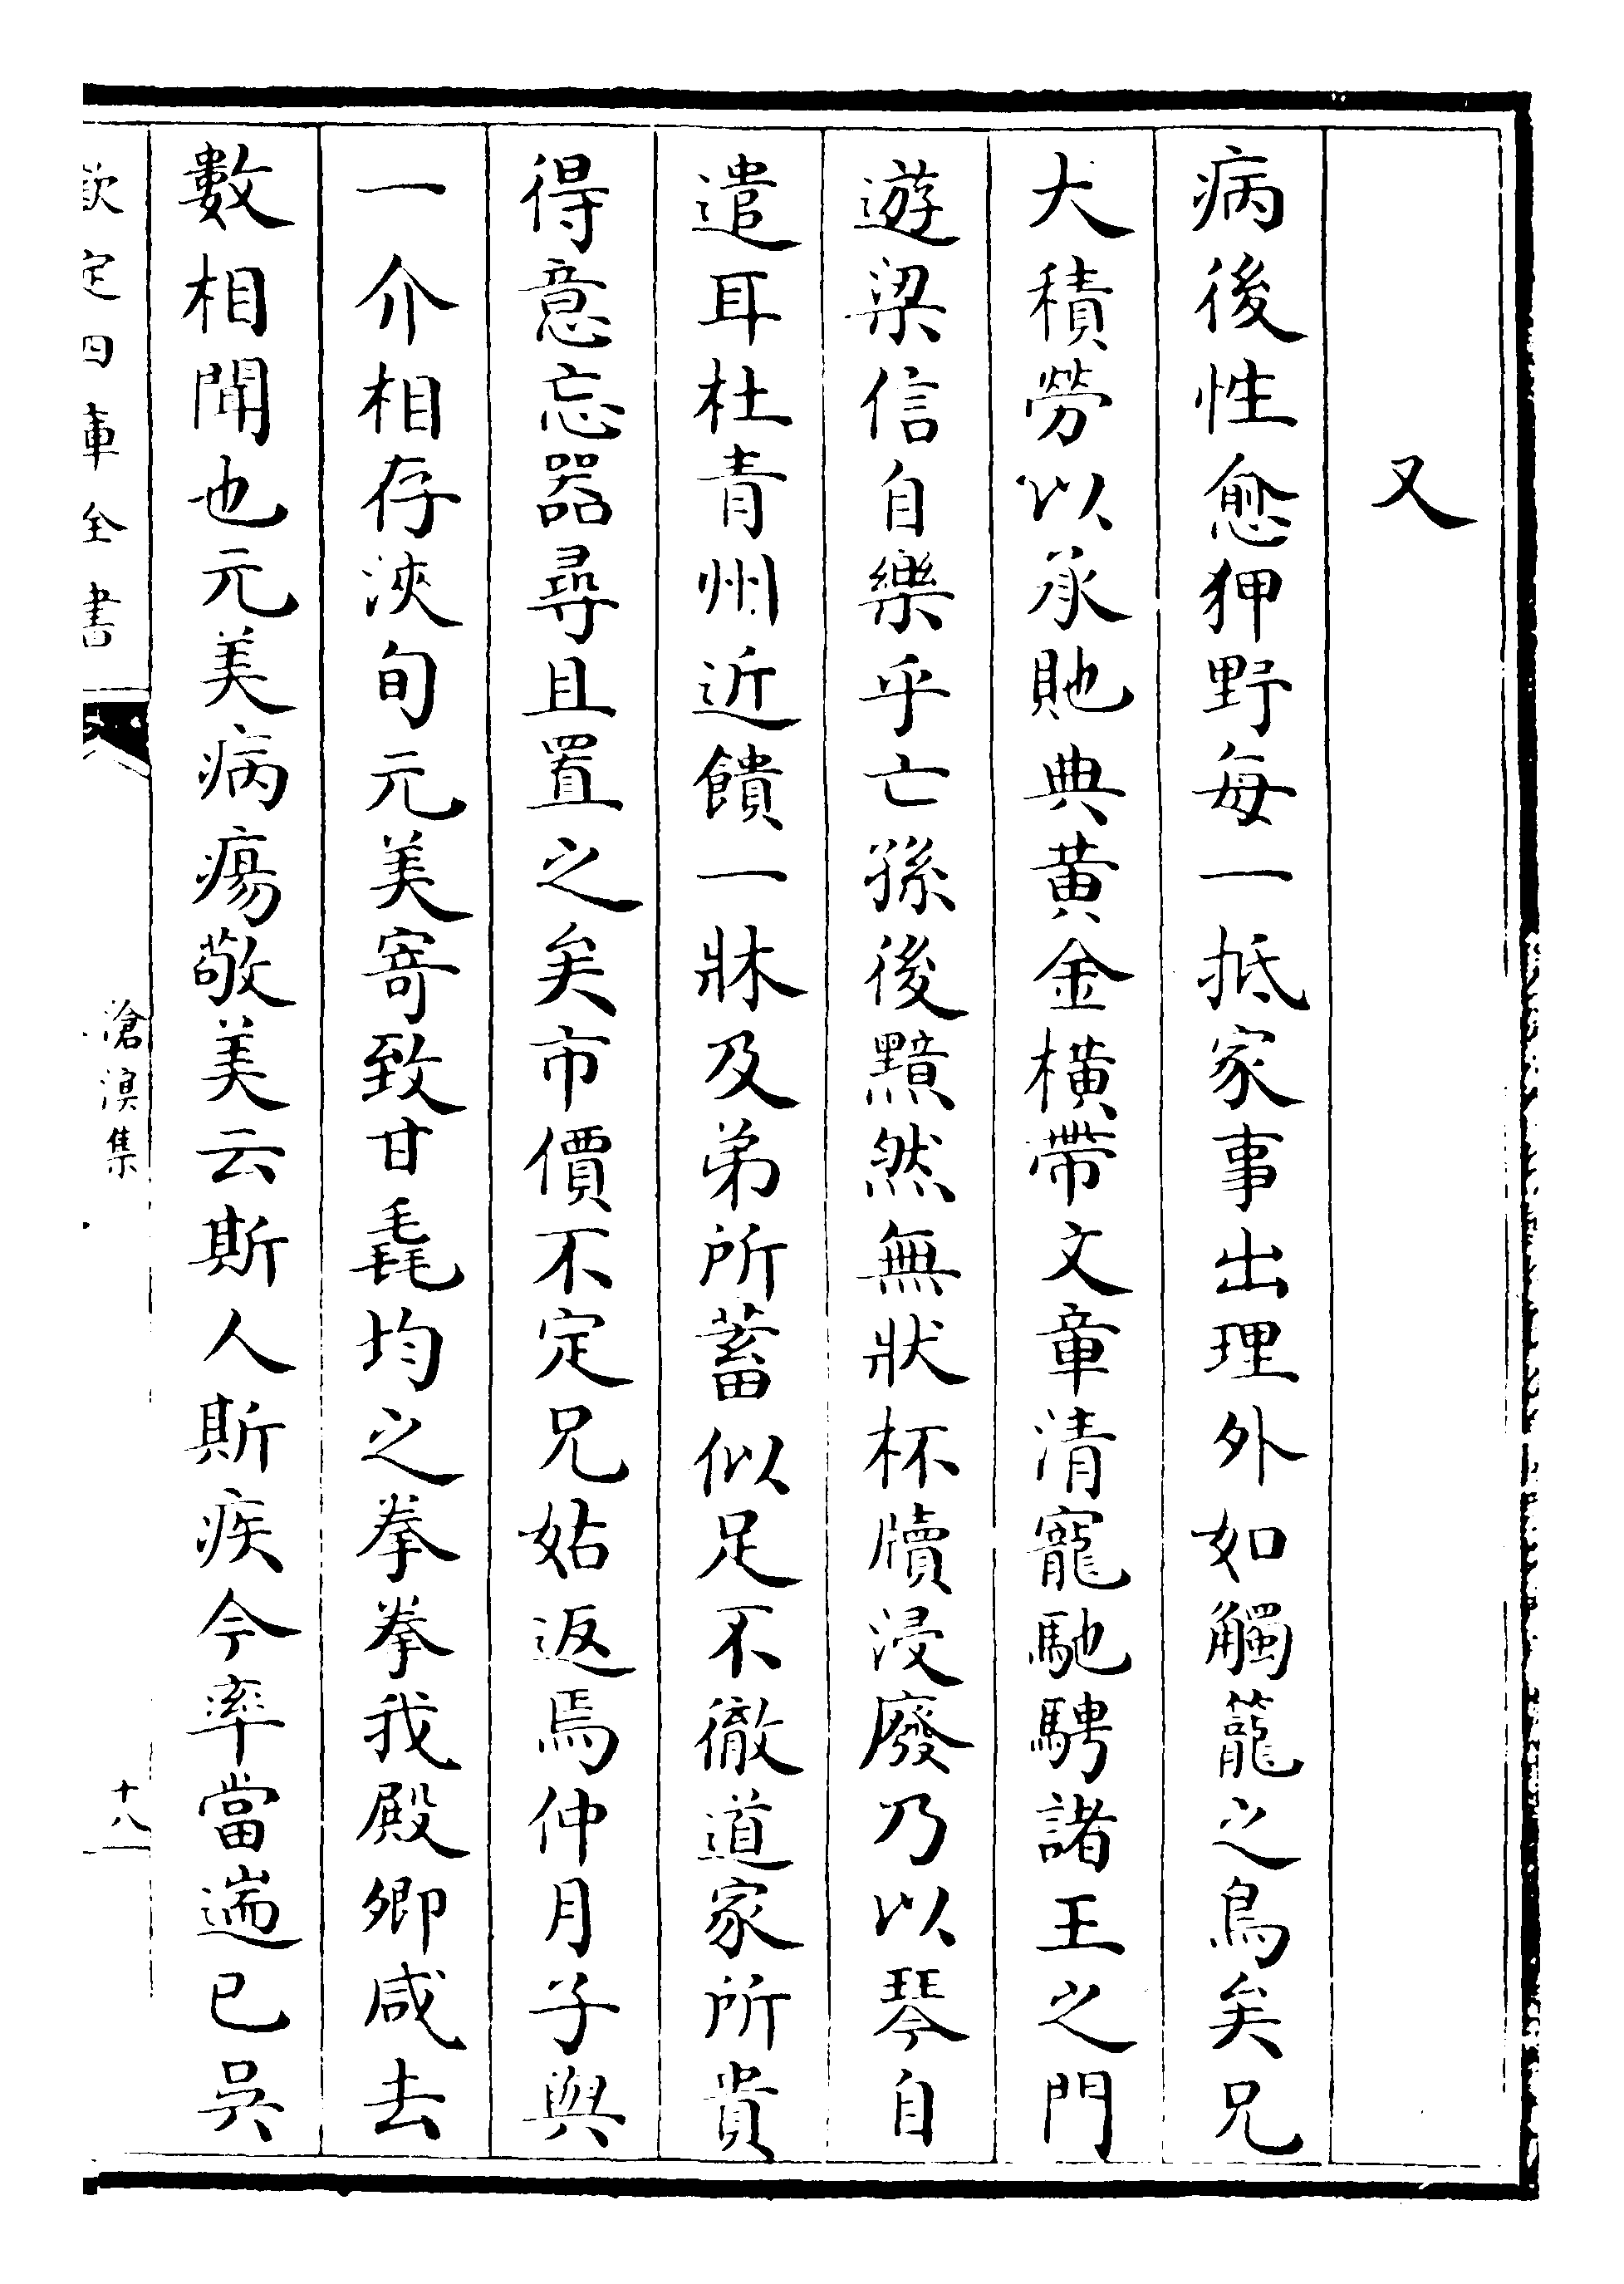 又
病後性愈狎野每一抵家事出理外如觸籠之鳥矣兄
大積勞以承貤典黄金横帶文章清寵馳騁諸王之門
遊梁信自樂乎亡孫後黯然無狀杯牘浸廢乃以琴自
遣耳杜青州近饋一牀及弟所蓄似足不徹道家所貴
得意忘器尋且置之矣市價不定兄姑返焉仲月子與
一介相存浹旬元美寄致甘毳均之拳拳我殿卿咸去
數相聞也元美病瘍敬美云斯人斯疾今率當遄已吳
欽定四庫全書
滄溟集
十八